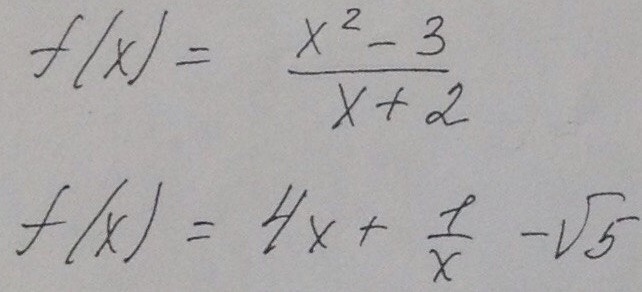 f(x) = (x² - 3)/(x + 2)
f(x) = 4x + 1/x - √5